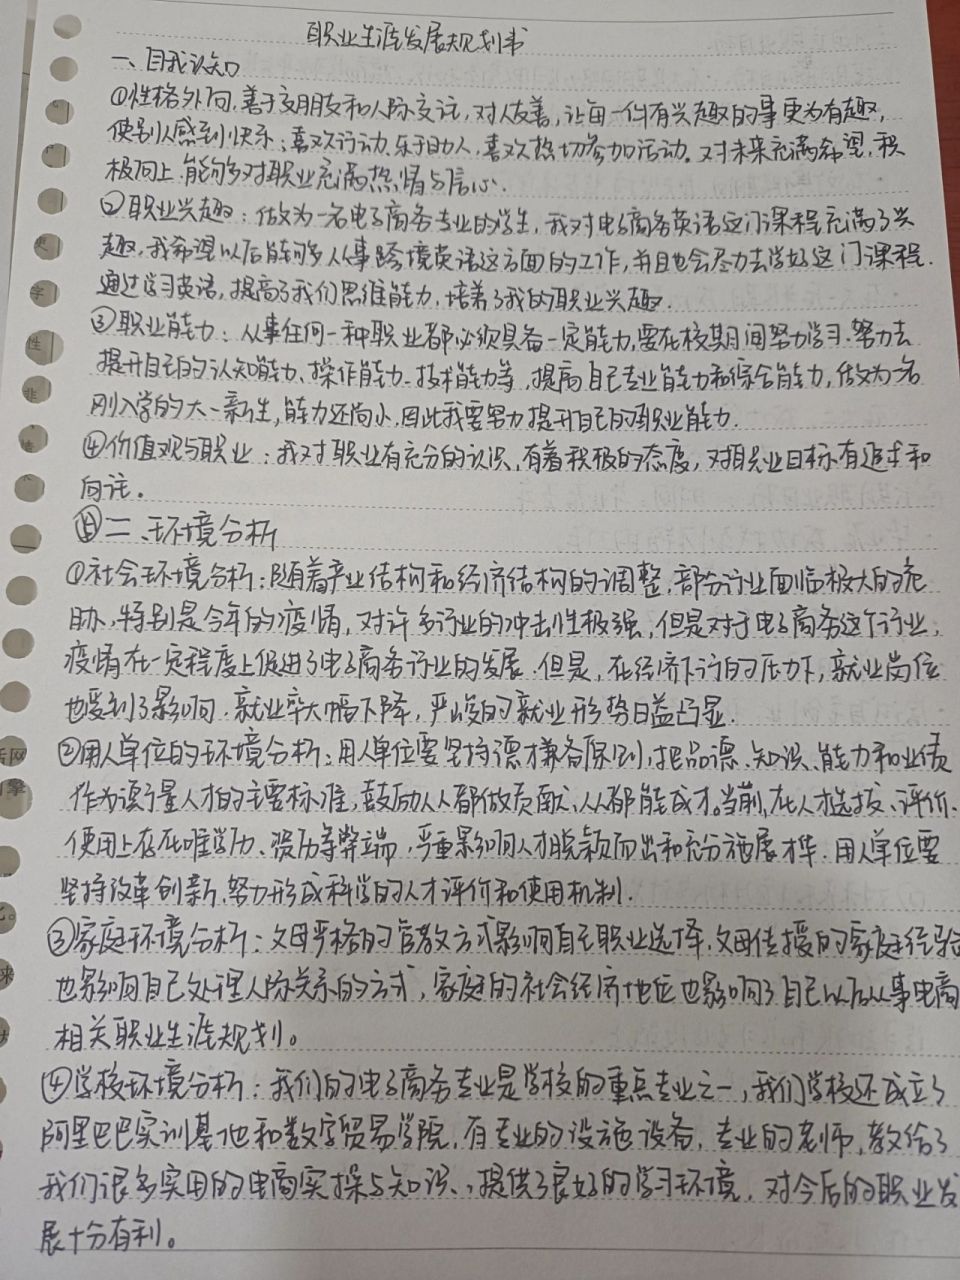 职业生涯发展规划书
一、自我认知
①性格外向,善于交朋友和人际交往,对人友善,让每一件有兴趣的事更为有趣,
使别人感到快乐;喜欢行动、乐于助人,喜欢热切参加活动。对未来充满希望,积
极向上,能够对职业充满热情与信心.
②职业兴趣:做为一名电子商务专业的学生,我对电子商务英语这门课程充满了兴
趣,我希望以后能够多从事跨境英语这方面的工作,并且也会尽力去学好这门课程.
通过学习英语,提高了我们思维能力,培养了我的职业兴趣.
③职业能力:从事任何一种职业都必须具备一定能力,要在校期间努力学习.努力去
提升自己的认知能力、操作能力、技术能力等,提高自己专业能力和综合能力,做为一名
刚入学的大一新生,能力还尚小,因此我要努力提升自己的职业能力.
④价值观与职业:我对职业有充分的认识,有着积极的态度,对职业目标有追求和
向往。
二、环境分析
①社会环境分析:随着产业结构和经济结构的调整,部分行业面临极大的危
胁,特别是今年的疫情,对许多行业的冲击性极强,但是对于电子商务这个行业,
疫情在一定程度上促进了电子商务行业的发展.但是,在经济下行的压力下,就业岗位
也受到了影响.就业率大幅下降,严峻的就业形势日益凸显.
②用人单位的环境分析:用人单位要坚持德才兼备原则,把品德、知识、能力和业绩
作为衡量人才的主要标准,鼓励人人都做贡献,人人都能成才。当前,在人才选拔、评价、
使用上存在唯学历、资历等弊端,严重影响人才脱颖而出和充分施展才华.用人单位要
坚持改革创新,努力形成科学的人才评价和使用机制.
③家庭环境分析:父母严格的管教方式影响自己职业选择,父母传授的家庭经验
也影响自己处理人际关系的方式,家庭的社会经济地位也影响了自己以后从事电商
相关职业生涯规划。
④学校环境分析:我们的电子商务专业是学校的重点专业之一,我们学校还成立了
阿里巴巴实训基地和数字贸易学院,有专业的设施设备,专业的老师,教给了
我们很多实用的电商实操与知识、,提供了良好的学习环境,对今后的职业发
展十分有利。